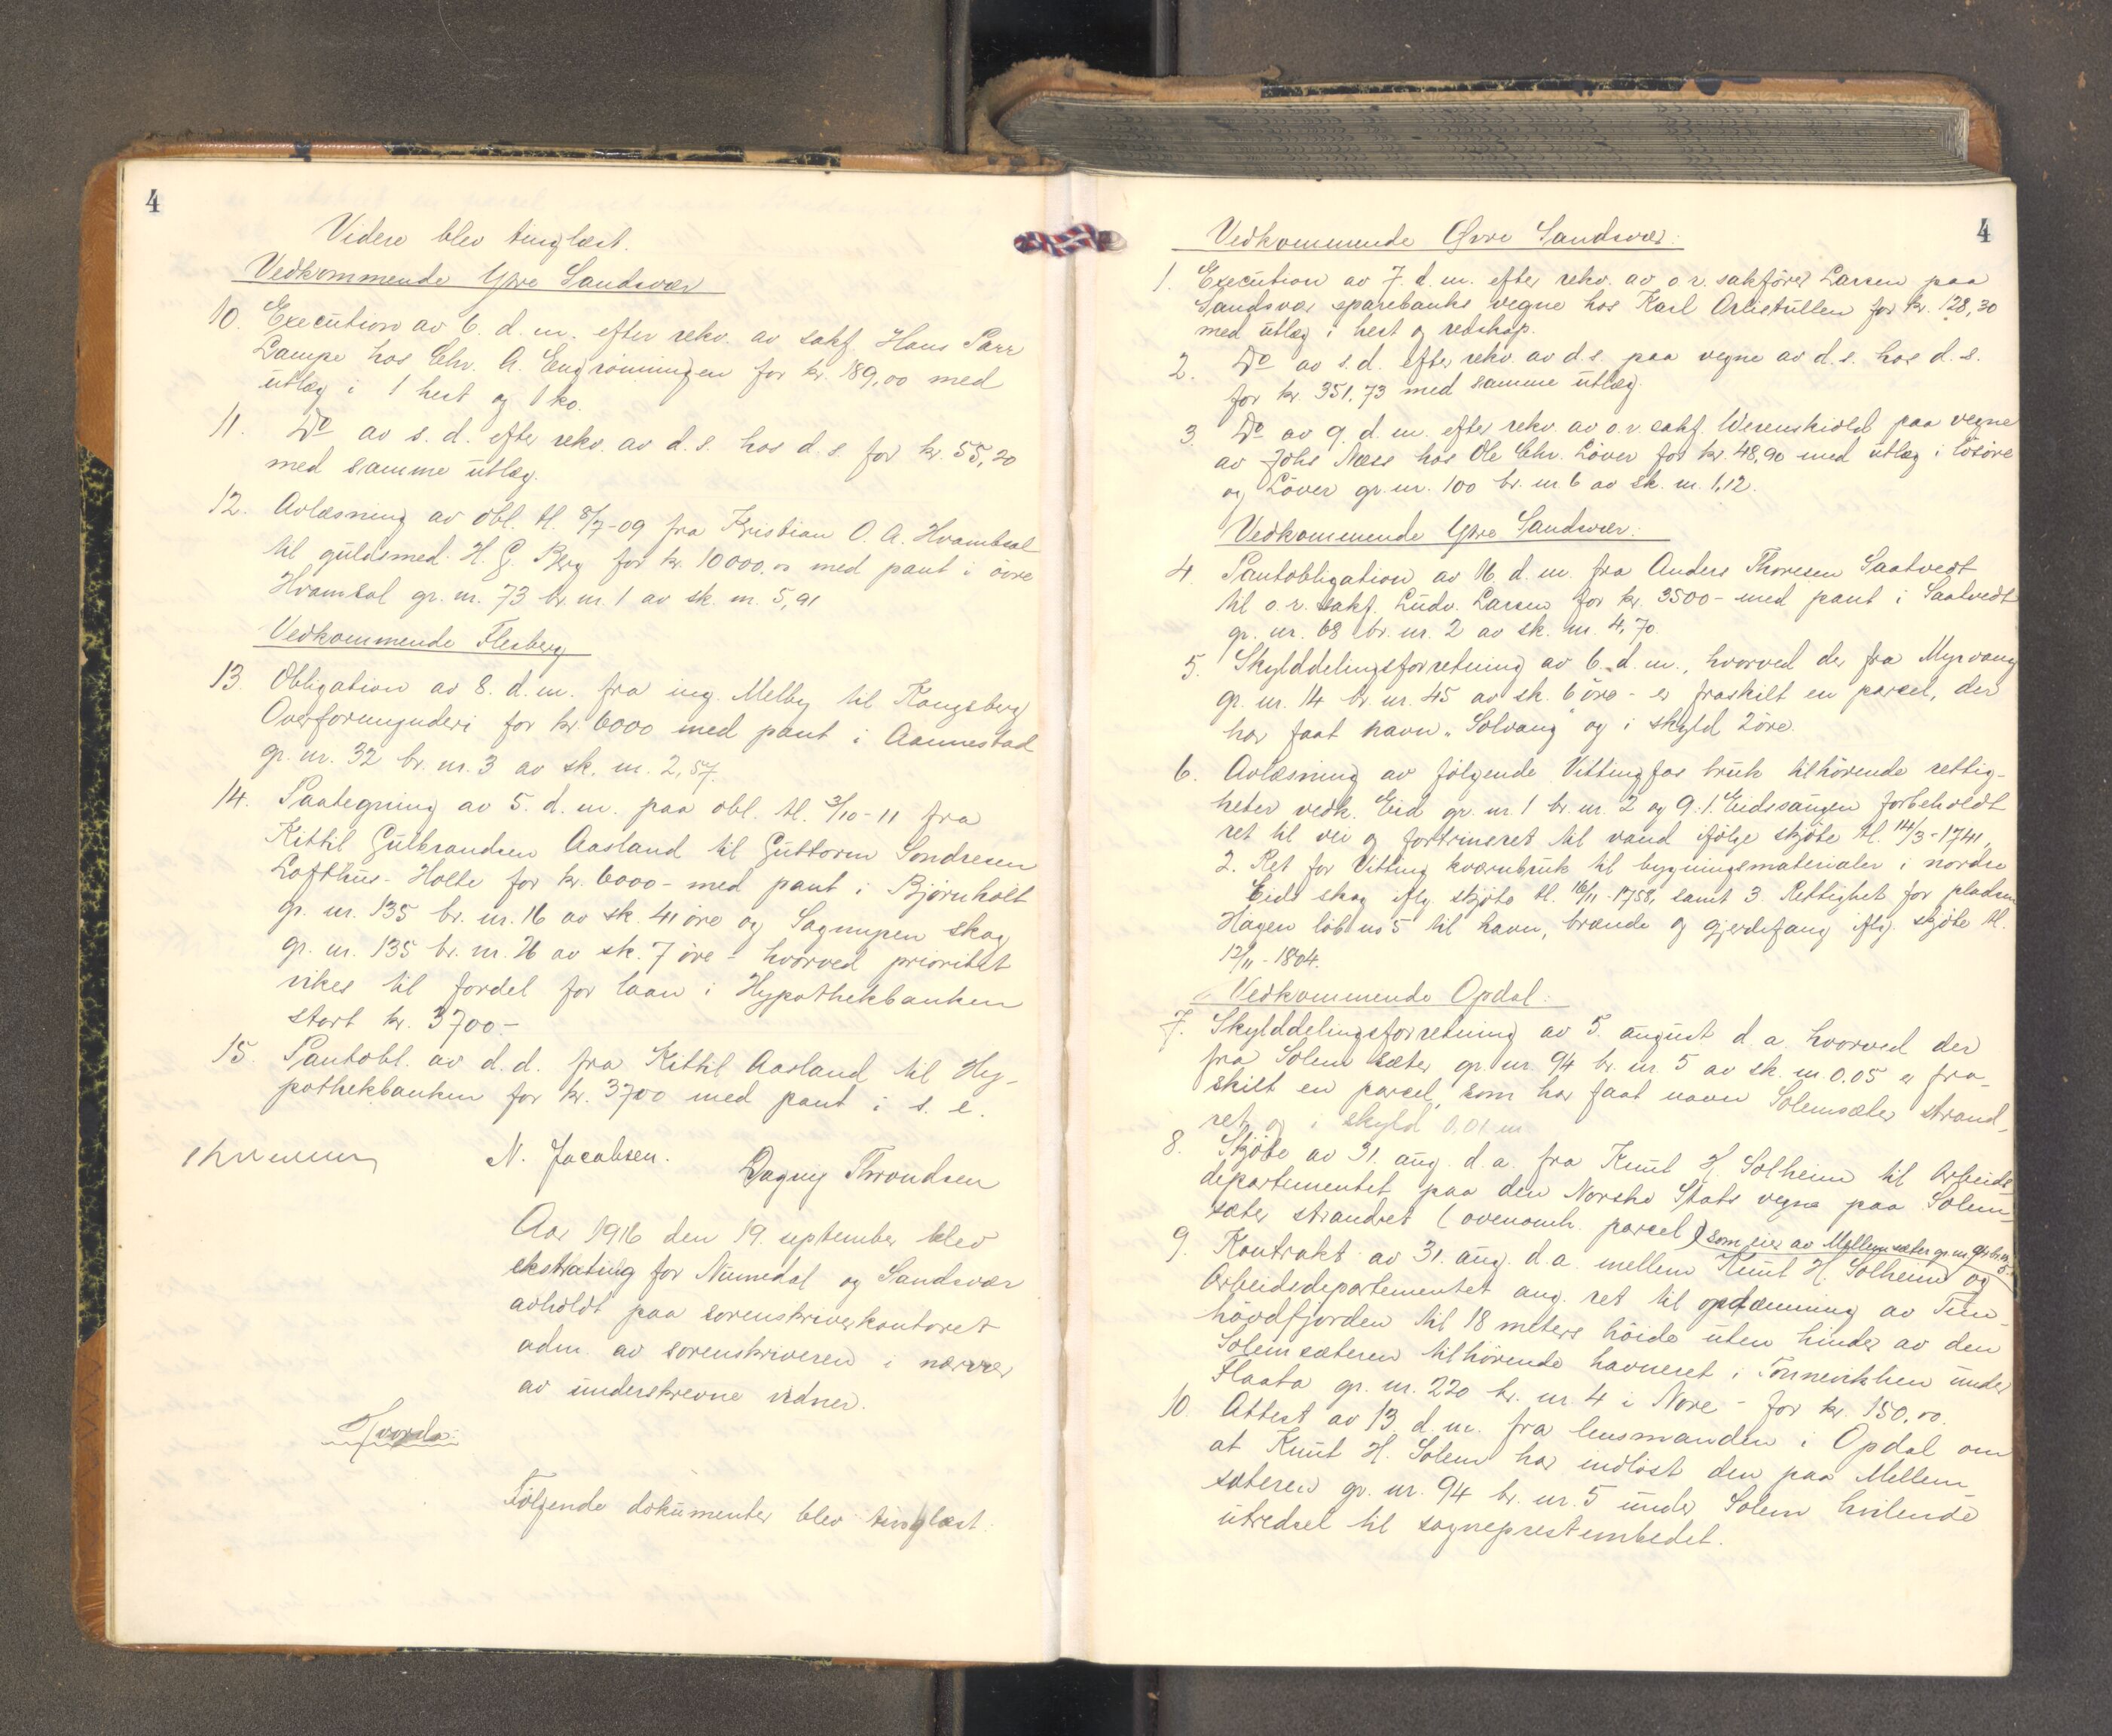 4
Videre blev tinglæst.
Vedkommende Ytre Sandsvær
10. Execution av 6. d. m. efter rekv. av sakf. Hans Parr
Lampe hos Chr. A. Engrönningen for kr. 189,00 med
utlæg i 1 hest og 1 ko.
11. Do av s. d. efter rekv. av d. s. hos d. s. for kr. 55,20
med samme utlæg.
12. Avlæsning av obl. tl. 8/7-09 fra Kristian O. A. Hvambsal
til guldsmed H. G. Berg for kr. 10000.00 med pant i övre
Hvamsal gr. nr. 73 br. nr. 1 av sk. m. 5,91
Vedkommende Flesberg
13. Obligation av 8. d. m. fra ing. Melby til Kongsberg
Overformynderi for kr. 6000 med pant i Aannestad
gr. nr. 32 br. nr. 3 av sk. m. 2,57.
14. Paategning av 5. d. m. paa obl. tl. 3/10-11 fra
Kittil Gulbrandsen Aasland til Guttorm Sondresen
Lofthus-Holte for kr. 6000- med pant i Bjørnholt
gr. nr. 135 br. nr. 16 av sk. 41 öre og Sagmyren skog
gr. nr. 135 br. nr. 26 av sk. 7 öre - hvorved prioritet
vikes til fordel for laan i Hypothekbanken
stort kr. 3700.-
15. Pantobl. av d. d. fra Kittil Aasland til Hy-
pothekbanken for kr. 3700 med pant i s. e.
N. Jacobsen. Dagny Throndsen
Aar 1916 den 19. september blev
ekstrating for Numedal og Sandsvær
avholdt paa sorenskriverkontoret
adm. av sorenskriveren i nærvær
av underskrevne vidner.
Hvorda:
Følgende dokumenter blev tinglæst:
4
Vedkommende Øvre Sandsvær:
1. Execution av 7. d. m. efter rekv. av o. r. sakförer Larsen paa
Sandsvær sparebanks vegne hos Karl Orlistullen for kr. 128,30
med utlæg i hest og redskap.
2. Do av s. d. efter rekv. av d. s. paa vegne av d. s. hos d. s.
for kr. 351.73 med samme utlæg.
3. Do av 9. d. m. efter rekv. av o. r. sakf. Werenskiold paa vegne
av Johs Næss hos Ole Chr. Löver for kr. 48,90 med utlæg i lösöre
og Löver gr. nr. 100 br. nr 6 av sk. m. 1,12.
Vedkommende Ytre Sandsvær:
4. Pantobligation av 16. d. m. fra Anders Thoresen Saatvedt
til o. r. sakf. Ludv. Larsen for kr. 3500- med pant i Saatvedt
gr. nr. 68 br. nr. 2 av sk. m. 4,70.
5. Skylddelingsforretning av 6. d. m., hvorved der fra Myrvang
gr. nr. 14 br. nr. 45 av sk. 6 öre - er fraskilt en parcel, der
har faat navn „Solvang" og i skyld 2 öre.
6. Avlæsning av følgende Vittingfos bruk tilhörende rettig-
heter vedk. Eid gr. nr 1 br. nr. 2 og 9: 1. Eidssaugen forbeholdt
ret til vei og fortrinsret til vand ifölge skjöte tl. 14/3-1741,
2. Ret for Vitting kværnbruk til bygningsmaterialer i nordre
Eids skog iflg. skjöte tl. 16/11-1758, samt 3. Rettighet for pladsen
Hagen löb no 5 til havn, brænde og gjerdefang iflg. skjöte tl.
12/11-1804.
Vedkommende Opdal:
7. Skylddelingsforretning av 5. august d. a. hvorved der
fra Solem sæter gr. nr 94 br. nr 5 av sk. m. 0.05 er fra-
skilt en parcel, som har faat navn Solemsæter strand-
ret og i skyld 0,01 m
8. Skjöte av 31. aug. d. a. fra Knut H. Solheim til Arbeids-
departementet paa den Norske Stats vegne paa Solem-
sæter strandret (ovennævnte. parcel) som eier av Mellemsæter gr. nr 94 br. nr 5.
9. Kontrakt av 31. aug. d. a. mellem Knut H. Solheim og
Arbeidsdepartementet ang. ret til opdæmning av Tun-
hövdfjorden til 18 meters höide uten hinder av den
Solemsæteren tilhörende havneret i Tonnevikhen under
Flaata gr. nr. 220 br. nr 4 i Nore - for kr. 150.00.
10. Attest av 13. d. m. fra lensmanden i Opdal om
at Knut H. Solem har indlöst den paa Mellem-
sæteren gr. nr. 94 br. nr. 5 under Solem hvilende
utredsel til sogneprestembedet.